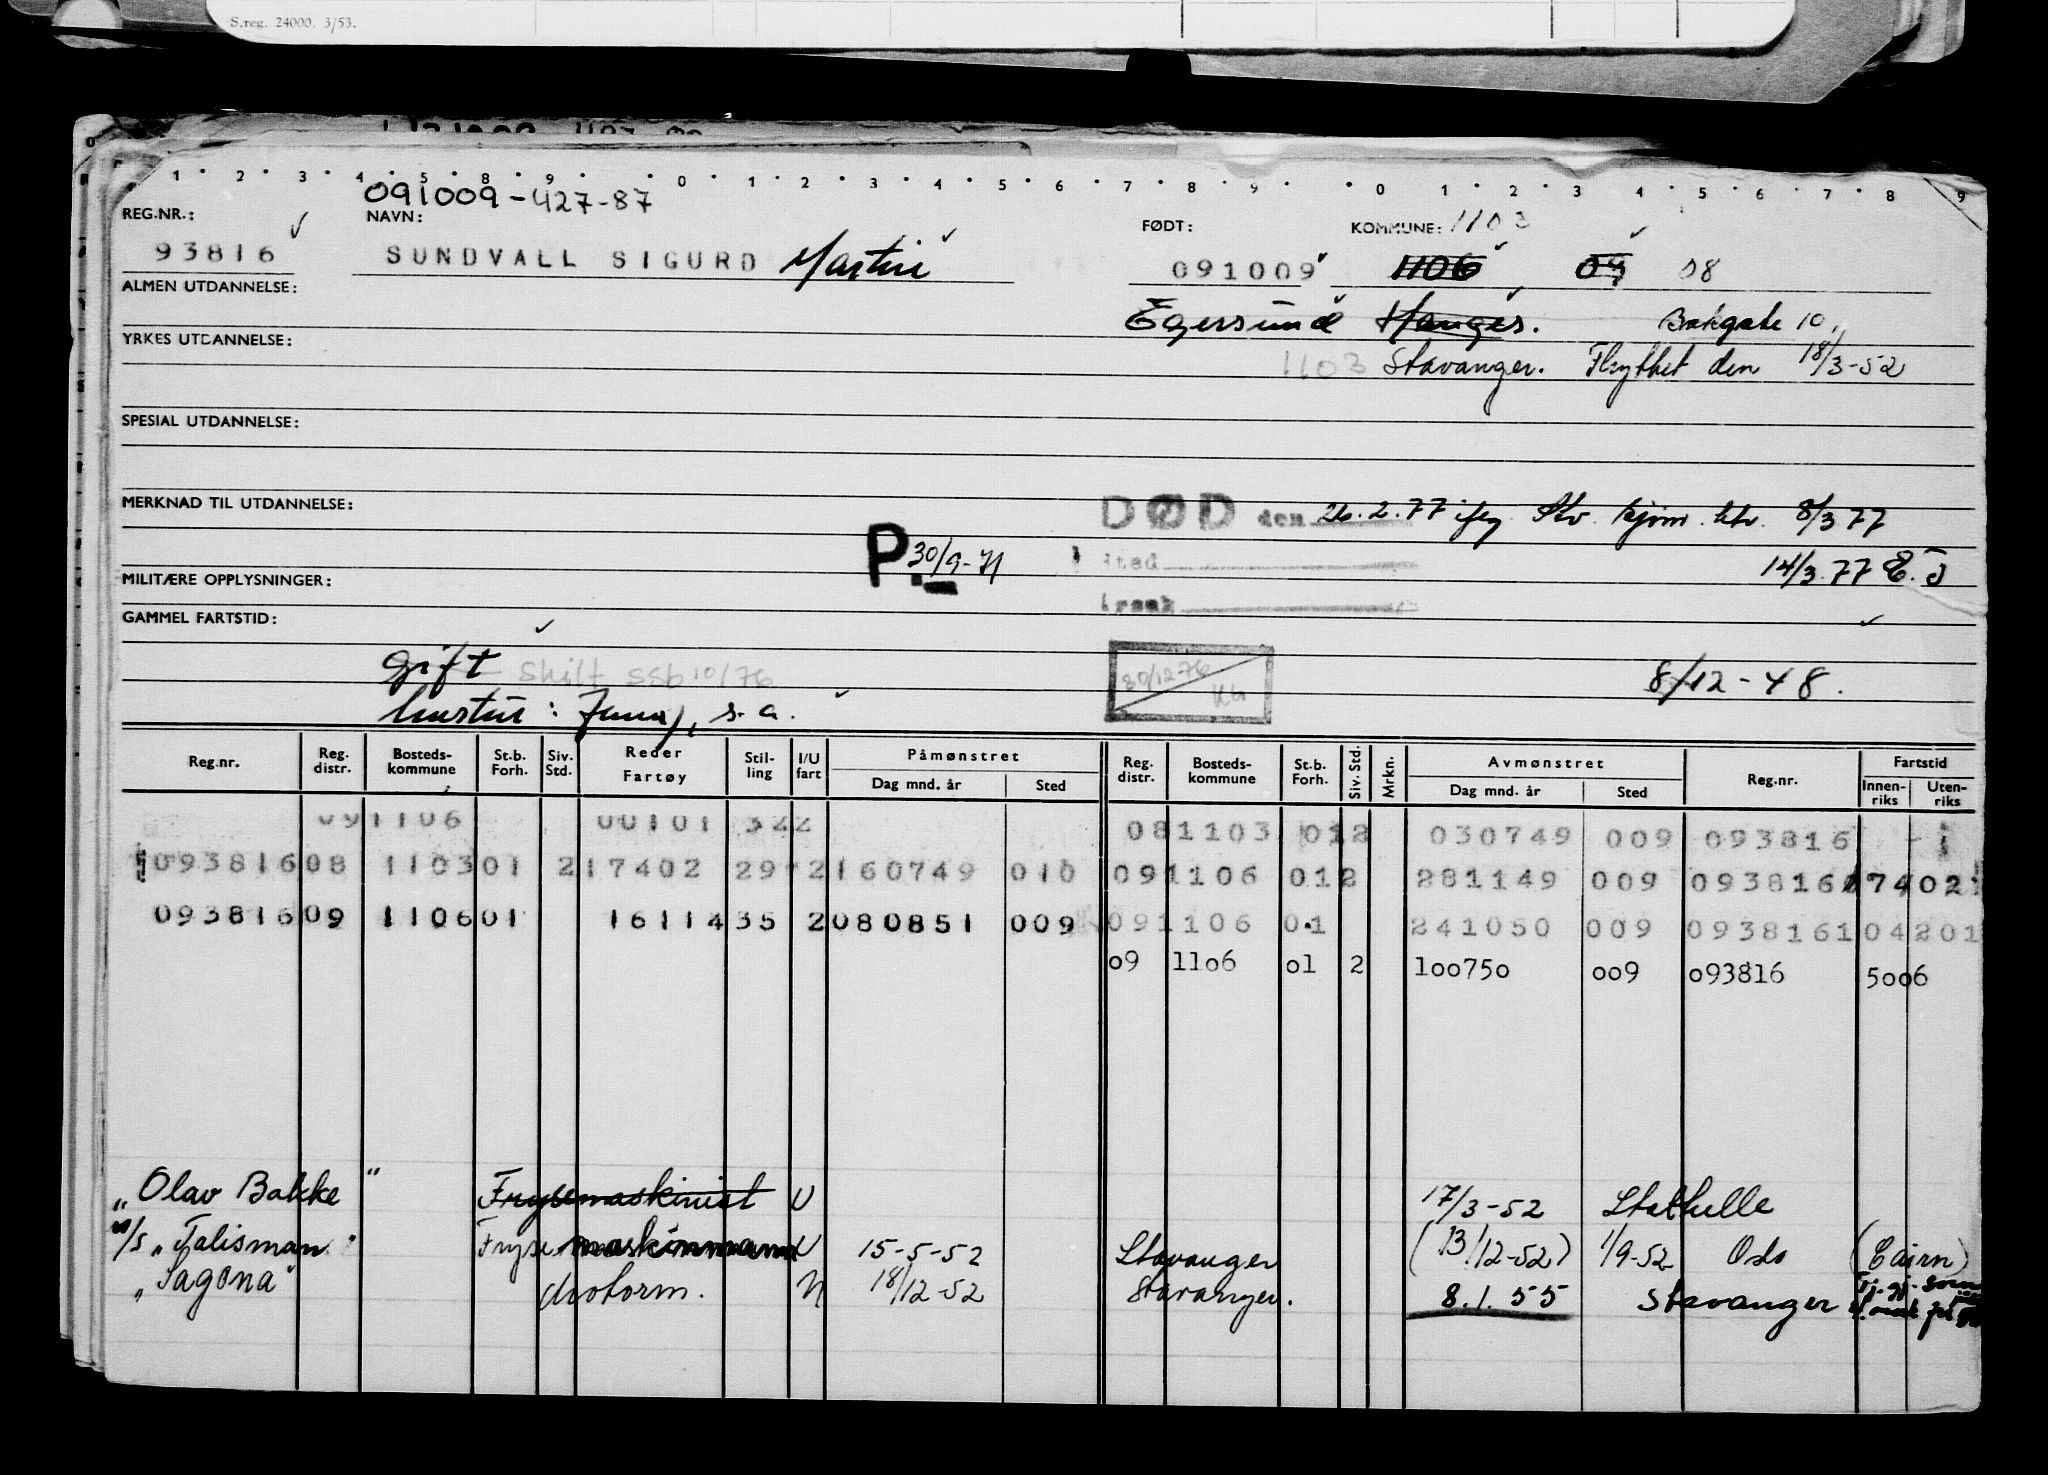 S.reg. 24000. 3/53.
1 2 3 4 5 8 9 0 1 2 3 4 5 6 7 8 9 0 1 2 3 4 5 6 7 8 9
091009-427-87
REG.NR.: NAVN: FØDT: KOMMUNE: 1103
93816 SUNDVALL SIGURD Martin 091009 1106 09 08
ALMEN UTDANNELSE:
Egersund Hauges. Bakgate 10,
YRKES UTDANNELSE:
1103 Stavanger. Flyttet den 18/3-52
SPESIAL UTDANNELSE:
MERKNAD TIL UTDANNELSE:
DØD den 26.2.77 iføg Stv. hjem. 8/3 77
P. 30/9-71 sted 14/3.77
MILITÆRE OPPLYSNINGER:
GAMMEL FARTSTID: årsak
Gift Skilt SSB 10/76 30/12-76 8/12-48.
hustru: Jenny, s.a.
Reg.nr. Reg. distr. Bosteds-kommune St.b. Forh. Siv. Std. Reder Fartøy Stil-ling I/U fart Påmønstret Dag mnd. år Sted Reg. distr. Bosteds-kommune St.b. Forh. Siv. Std. Mrkn. Avmønstret Dag mnd. år Sted Reg.nr. Fartstid Innen-riks Uten-riks
091106 00101 322 081103 012 030749 009 093816 - 1
093816 08 1103 01 2 17402 29 2 160749 010 09 1106 01 2 281149 009 093816 7402
093816 09 1106 01 16114 35 2 080851 009 09 1106 01 241050 009 0938161 04201
09 1106 01 2 100750 009 093816 5006
"Olav Bakke" Frysemaskinist U 17/3-52 Stathelle
M/S "Talisman" Fryse maskinmann U 15-5-52 Stavanger (13/12-52) 1/9-52 Oslo (Cairn)
"Sagona" Motorm. N 18/12-52 Stavanger. 8.1.55 Stavanger